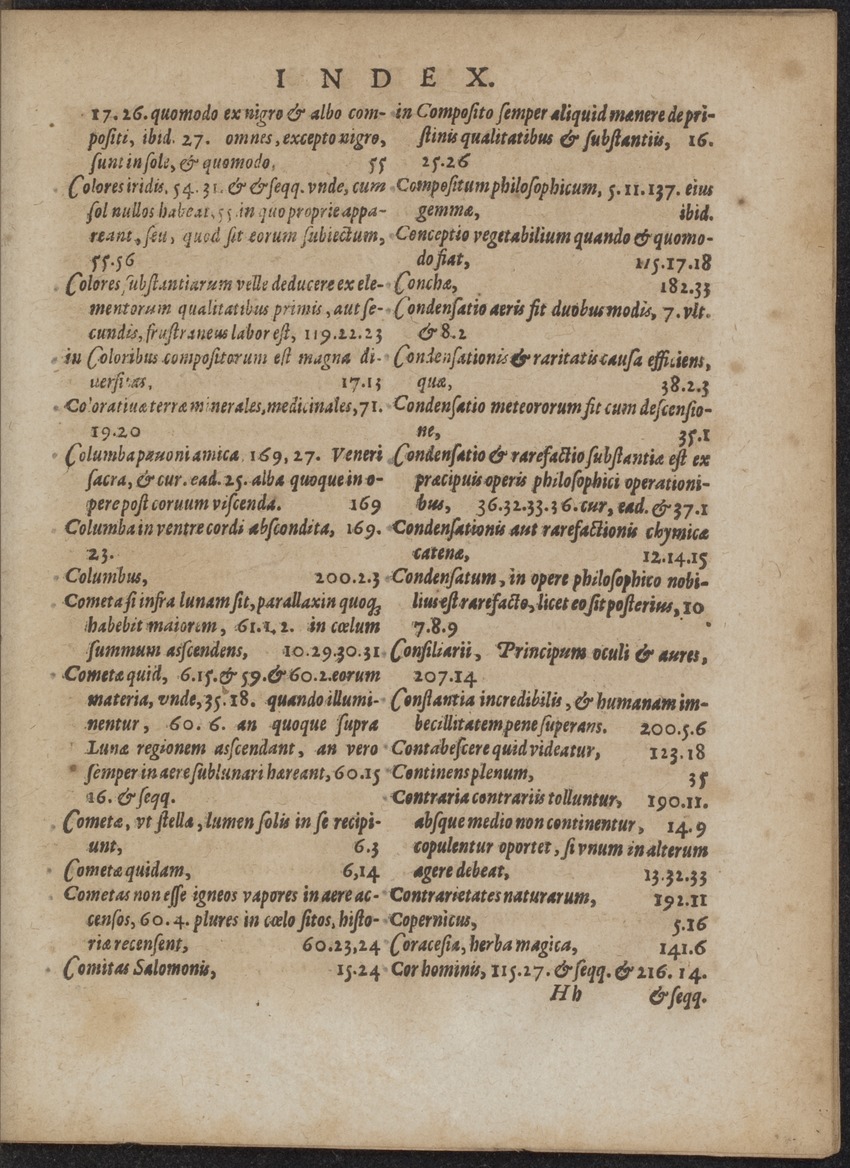 INDEX.
17. 26. quomodo ex nigro & albo com-
positi, ibid. 27. omnes, excepto nigro,
sunt in sole, & quomodo, 55
Colores iridis, 54. 31. & & seqq. vnde, cum
sol nullos habeat, 55. in quo proprie appa-
reant, seu, quod sit eorum subiectum,
55.56
Colores substantiarum velle deducere ex ele-
mentorum qualitatibus primis, aut se-
cundis, frustraneus labor est, 119.22.23
in Coloribus compositorum est magna di-
uersitas, 17.13
Coloratiuæ terræ minerales, medicinales, 71.
19.20
Columba pauoni amica, 169, 27. Veneri
sacra, & cur. ead. 25. alba quoque in o-
pere post coruum viscenda. 169
Columba in ventre cordi abscondita, 169.
23.
Columbus, 200.2.3
Cometa si infra lunam sit, parallaxin quoq;
habebit maiorem, 61.1, 2. in cœlum
summum asscendens, 10.29.30.31
Cometæ quid, 6.15. & 59. & 60.2. eorum
materia, vnde, 35.18. quando illumi-
nentur, 60. 6. an quoque supra
Lunæ regionem asscendant, an vero
semper in aere sublunari hæreant, 60.15
16. & seqq.
Cometæ, vt stella, lumen solis in se recipi-
unt, 6.3
Cometæ quidam, 6,14
Cometas non esse igneos vapores in aere ac-
censos, 60. 4. plures in cœlo sitos, histo-
riæ recensent, 60.23,24
Comitas Salomonis, 15.24
in Composito semper aliquid manere de pri-
stinis qualitatibus & substantiis, 16.
25.26
Compositum philosophicum, 5.11.137. eius
gemmæ, ibid.
Conceptio vegetabilium quando & quomo-
do fiat, 115.17.18
Conchæ, 182.33
Condensatio aeris fit duobus modis, 7. vlt.
& 8.2
Condensationis & raritatis causa efficiens,
quæ, 38.2.3
Condensatio meteororum fit cum descensio-
ne, 35.1
Condensatio & rarefactio substantiæ est ex
præcipuis operis philosophici operationi-
bus, 36.32.33.36. cur, ead. & 37.1
Condensationis aut rarefactionis chymicæ
catenæ, 12.14.15
Condensatum, in opere philosophico nobi-
lius est rarefacto, licet eo sit posterius, 10
7.8.9
Consiliarii, Principum oculi & aures,
207.14
Constantia incredibilis, & humanam im-
becillitatem pene superans. 200.5.6
Contabescere quid videatur, 123.18
Continens plenum, 35
Contraria contrariis tolluntur, 190.11.
absque medio non continentur, 14.9
copulentur oportet, si vnum in alterum
agere debeat, 13.32.33
Contrarietates naturarum, 192.11
Copernicus, 5.16
Coracesia, herba magica, 141.6
Cor hominis, 115.27. & seqq. & 216. 14.
Hh & seqq.